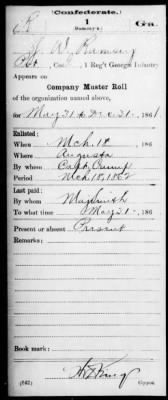 (Confederate.)
R 1 Ga.
Ramsey
Co. 1 Reg't Georgia Infantry
Appears on
Company Muster Roll
of the organization named above,
for May 31 to Dec 31, 1861
Enlisted:
When Mch 18, 186
Where Augusta
By whom Capt Crump
Period Mch 18, 1862
Last paid:
By whom Maj Smith
To what time May 31, 186
Present or absent Present
Remarks:
Book mark:
(642) Copyist.